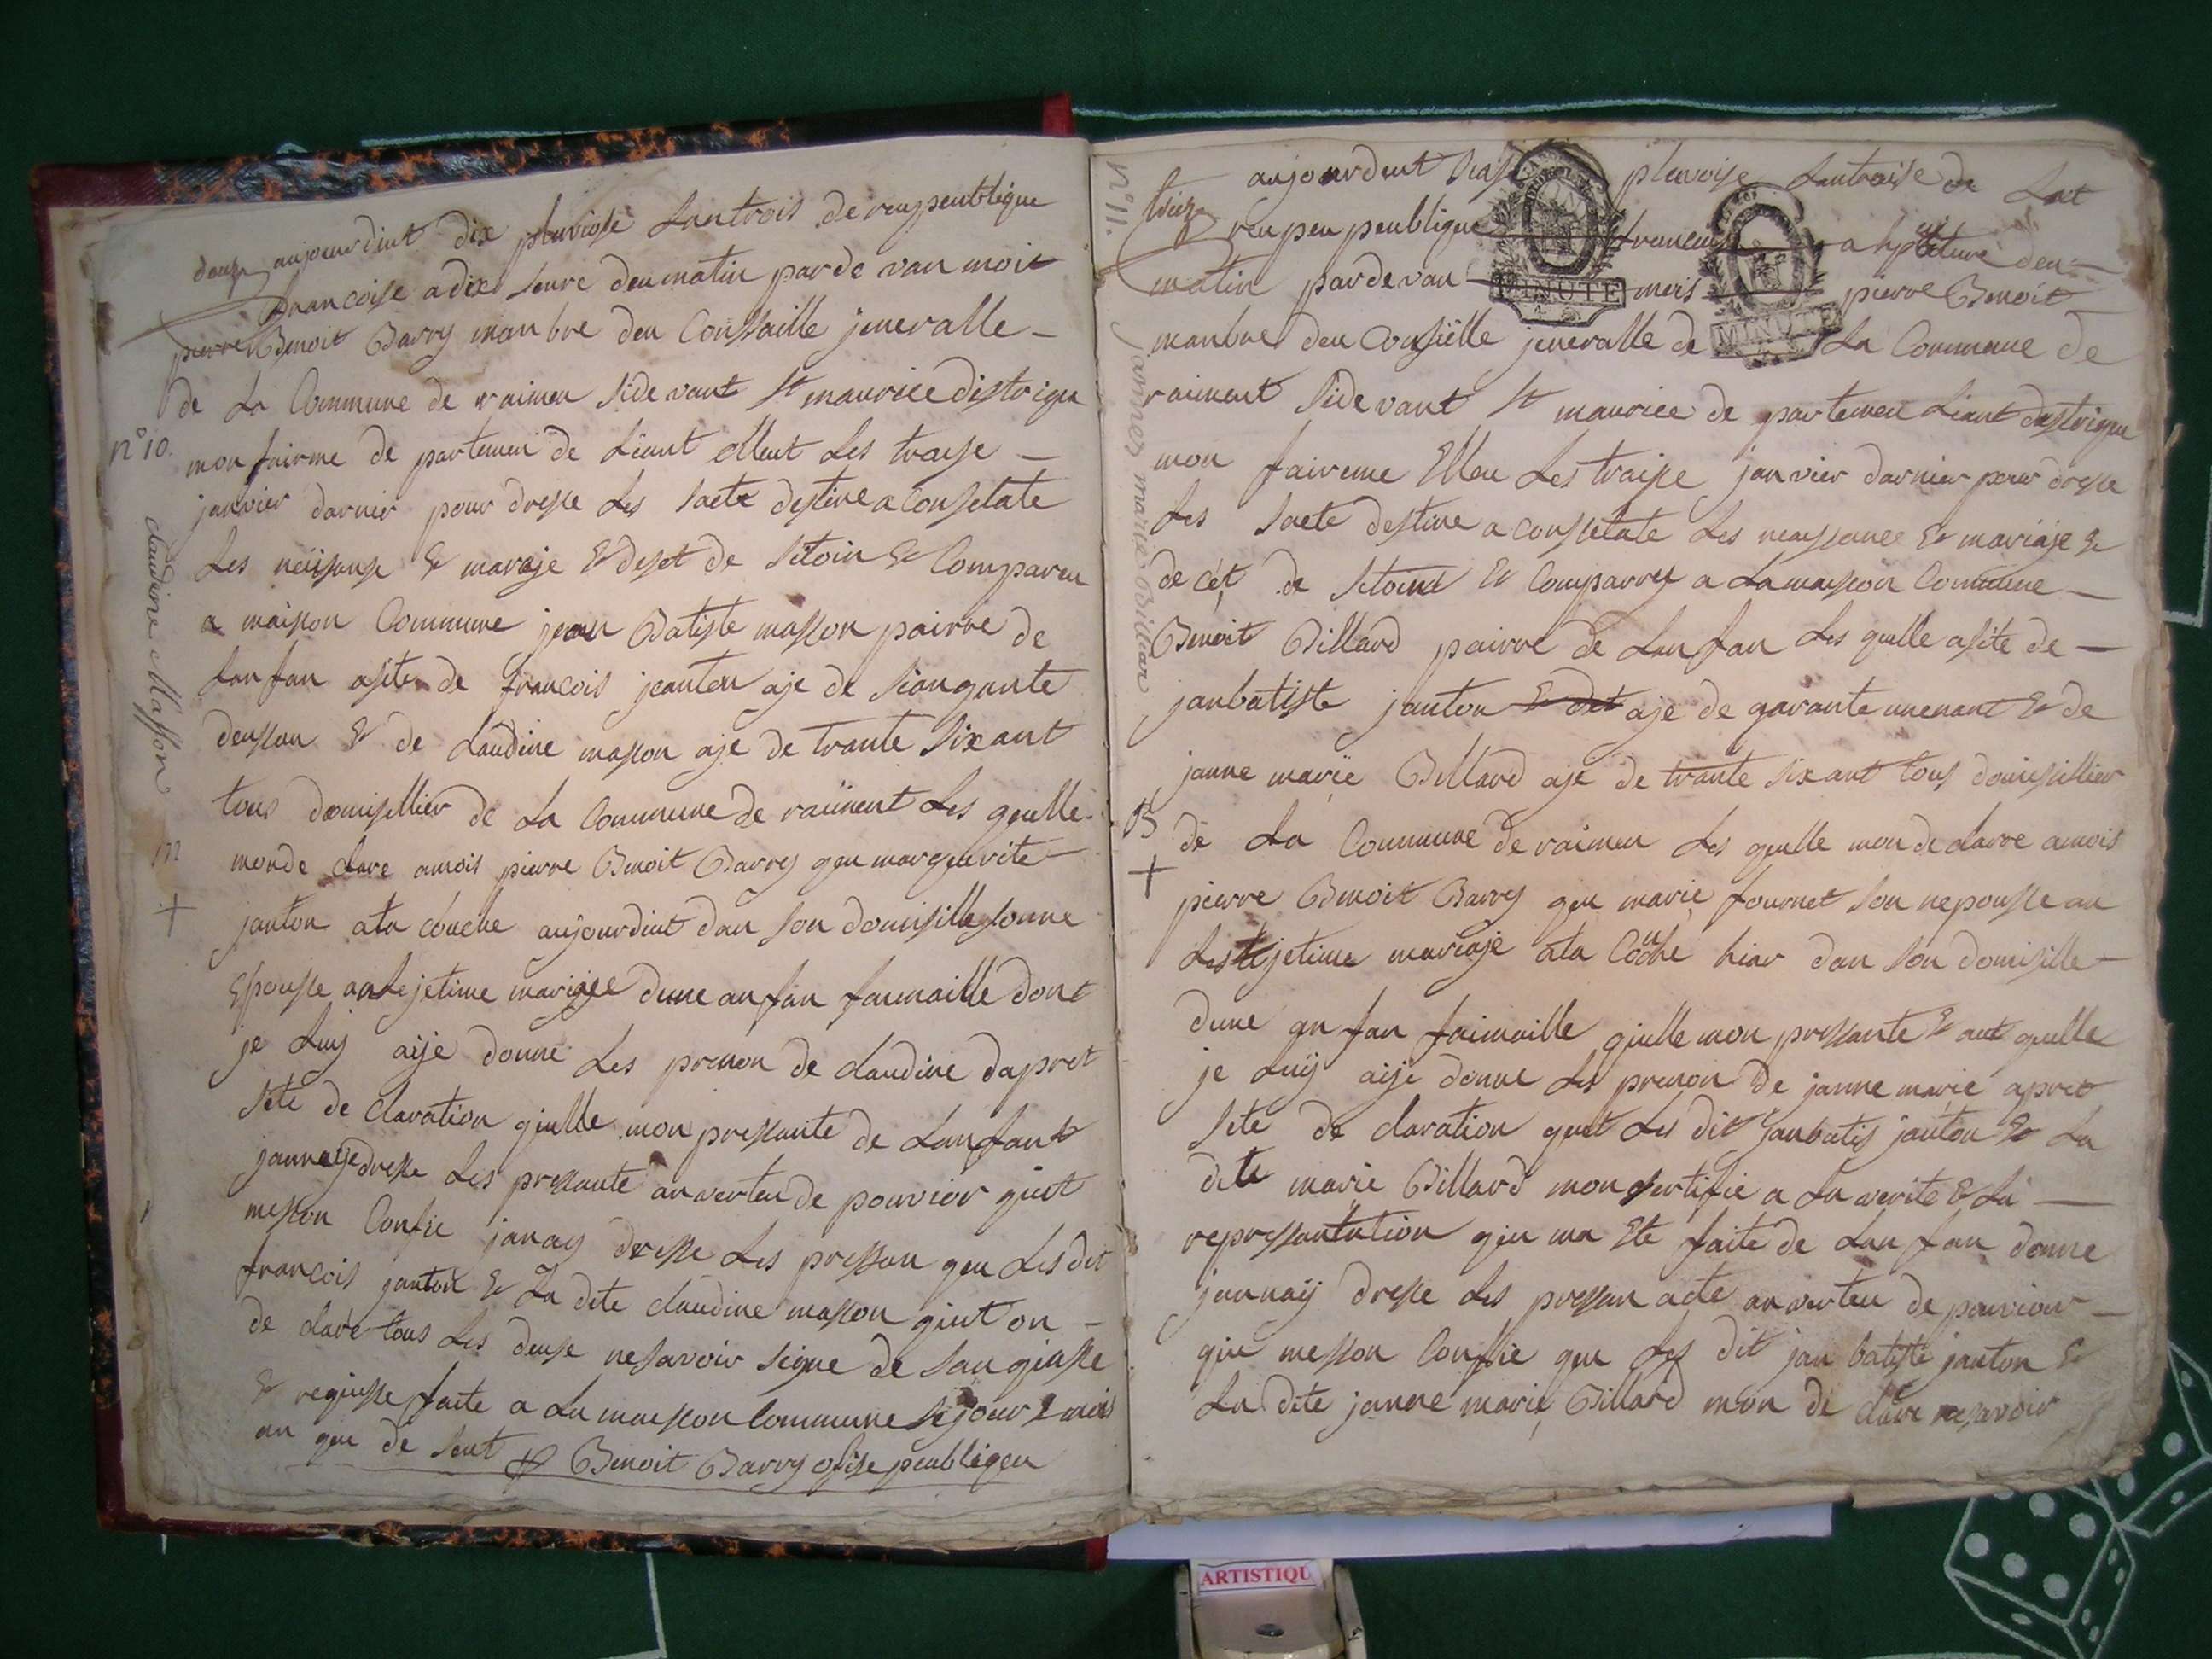 douze aujourdint dix pluviose Lantrois de reupeublique
francoise a dix heure deu matin par de van moit
pierre Benoit Barry manbre deu Conssaille jeneralle
de La Commune de raimen side vant St maurice distrique
n° 10.
mon fairme de partemen de Léant elleut Les traise
janvier darnier pour dresse Les sacte destine a Consetate
Les neissanse & maraje & deset de sitoin & Compareu
a maison Commune jean Batiste masson pairre de
Lanfan asite de francois jeanton aje de sianqante
deussan & de Laudine masson aje de trante six ant
tous domisillier de La Commune de raiment Les quelle
monde clare amois pierre Benoit Barry qeu marguerite
janton ata couche aujourdint dan son domisille sonne
Epouse an Lejetime mariaje dune anfan faimaille dont
je Luy aije donne Les prenon de claudine dapret
sete de claration quelle mon pressante de Lanfant
jannaije dresse Les pressante an verteu de pouvior quit
messon Confie janay dresse Les pressan qeu Les dit
francois janton & La dite claudine masson quit on
de clare tous Les deuse ne savoir signe de sau quisse
& requisse faite a La maisson Commune se jour & mois
an que de sent Benoit Barry ofise peubliqeu
claudine Masson
m
+
n° 11.
treize aujourdeut pluvoise Lantroise de Lat
reupeu peublique francoise a heure deu
matin par de van mois pierre Benoit
manbre deu Consielle jeneralle de La Commune de
raiment side vant St maurice de partemen Léant distrique
mon faireme Elleu Les traise janvier darnier pour dresse
Les sacte destine a consetate Les neassance & mariaje &
de cét de sitoint & Comparreu a La maisson Commune
Benoit Billard pairre de Lanfan Les quelle asite de
janbatiste janton aje de qarante unenant & de
janne marie Billard aje de trante six ant tous domisillier
de La Commune de raimen Les quelle mon de clarre amois
pierre Benoit Barry qeu marie fournet son nepousse an
Lestijetime mariaje ata Couche hiar dan son domisille
dune anfan faimaille quelle mon pressante & aut quelle
je Luÿ aije donne Les prenon de janne marie apret
sete de claration quit Les dit janbatis janton & La
dite marie Billard mon sertifie a La verite & La
repressantation qeu ma Ete faite de Lanfan donne
jannaÿ dresse Les pressan acte an verteu de pouvior
que messon Confie qeu Les dit jan batiste janton &
La dite janne marie Billard mon de clare ne savoir
jannes marie Billar
B
+
MINUTE
MINUTE
ARTISTIQU